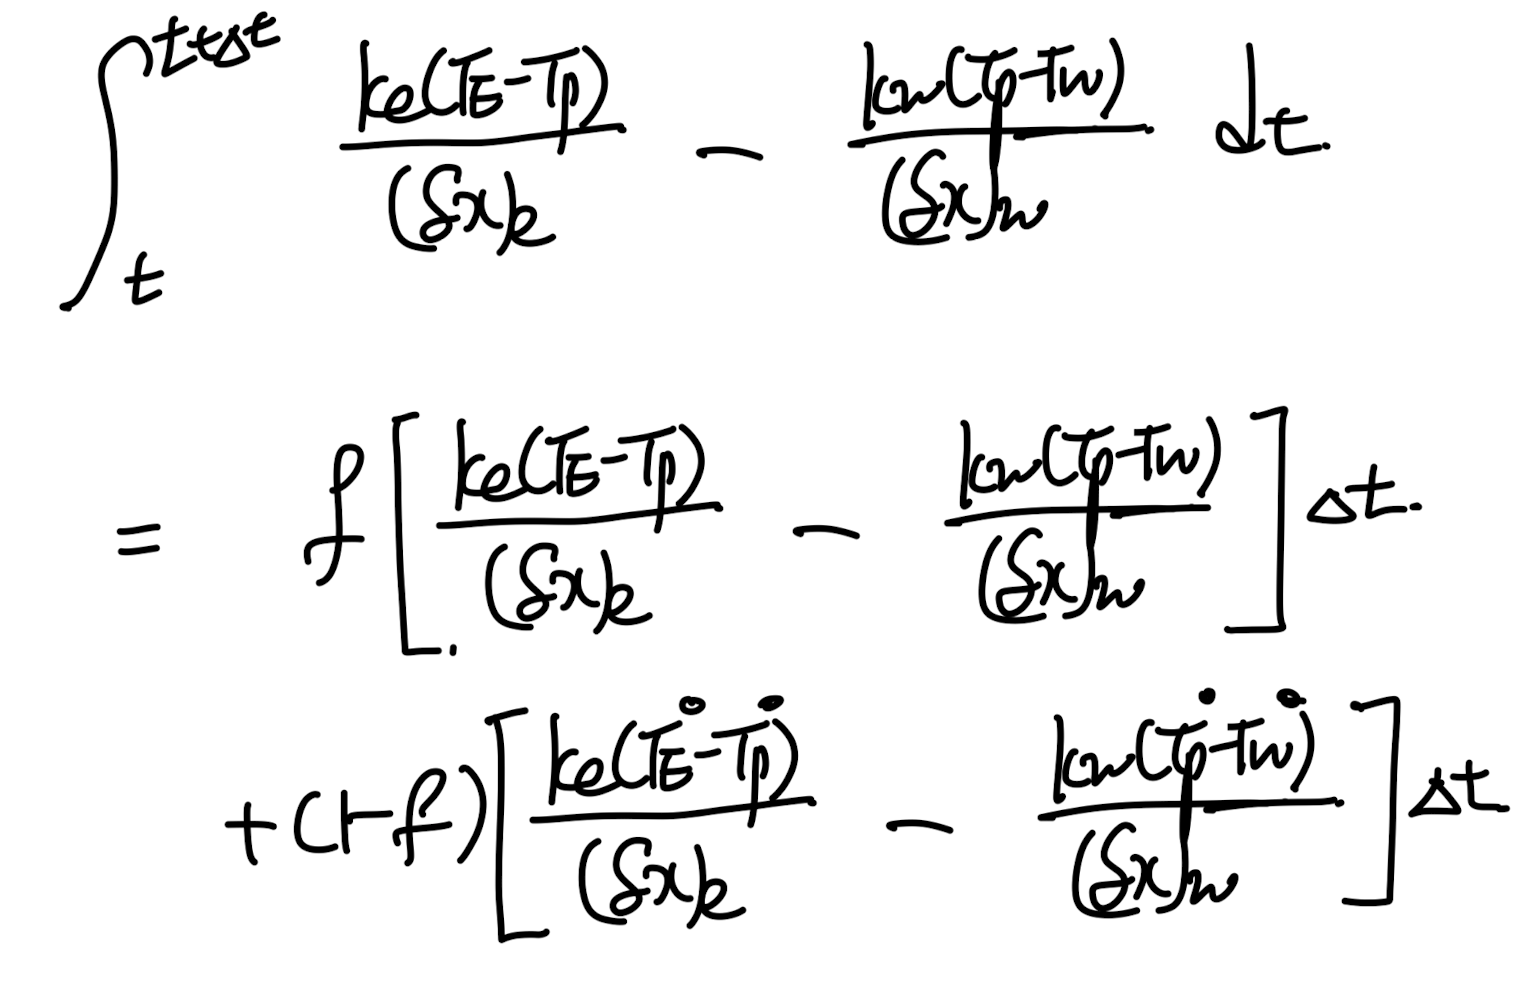 ∫_t^{t+Δt} \frac{k_e(T_E-T_P)}{(δx)_e} - \frac{k_w(T_P-T_W)}{(δx)_w} dt.
= f [ \frac{k_e(T_E-T_P)}{(δx)_e} - \frac{k_w(T_P-T_W)}{(δx)_w} ] Δt.
+ (1-f) [ \frac{k_e(T_E^0-T_P^0)}{(δx)_e} - \frac{k_w(T_P^0-T_W^0)}{(δx)_w} ] Δt